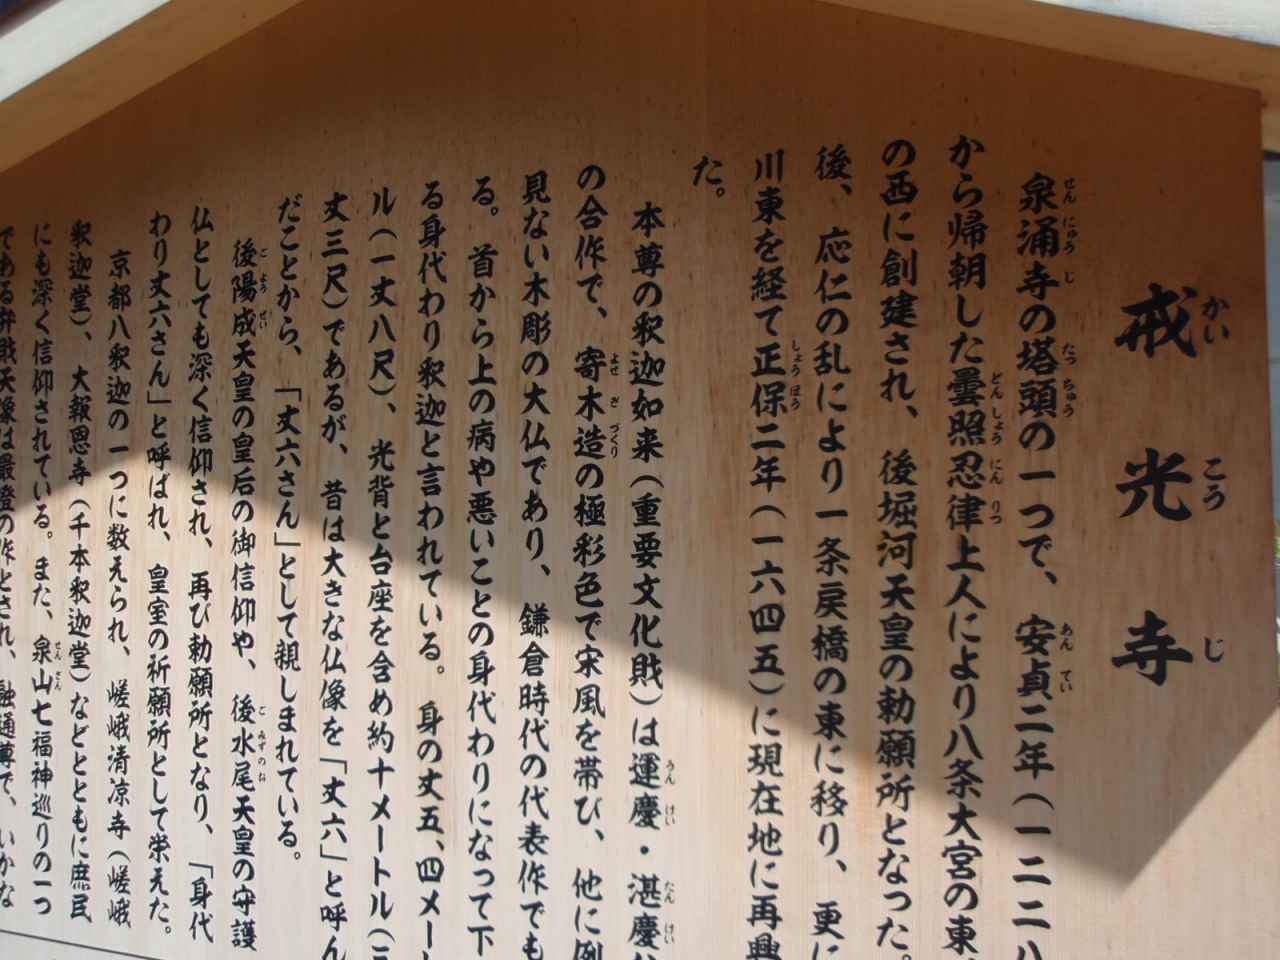 戒光寺
かいこうじ
泉涌寺の塔頭の一つで、安貞二年（一二二八
せんにゅうじ たっちゅう あんてい
から帰朝した曇照忍律上人により八条大宮の東
どんしょうにんりつ
の西に創建され、後堀河天皇の勅願所となった。
後、応仁の乱により一条戻橋の東に移り、更に
川東を経て正保二年（一六四五）に現在地に再興
しょうほう
た。
本尊の釈迦如来（重要文化財）は運慶・湛慶父
うんけい たんけい
の合作で、寄木造の極彩色で宋風を帯び、他に例
よせぎづくり
見ない木彫の大仏であり、鎌倉時代の代表作でも
る。首から上の病や悪いことの身代わりになって下
る身代わり釈迦と言われている。身の丈五、四メー
ル（一丈八尺）、光背と台座を含め約十メートル（三
丈三尺）であるが、昔は大きな仏像を「丈六」と呼ん
だことから、「丈六さん」として親しまれている。
後陽成天皇の皇后の御信仰や、後水尾天皇の守護
ごようせい ごみずのお
仏としても深く信仰され、再び勅願所となり、「身代
わり丈六さん」と呼ばれ、皇室の祈願所として栄えた。
京都八釈迦の一つに数えられ、嵯峨清凉寺（嵯峨
釈迦堂）、大報恩寺（千本釈迦堂）などとともに庶民
にも深く信仰されている。また、泉山七福神巡りの一つ
せんざん
である弁財天像は最澄の作とされ、融通尊で、いかな